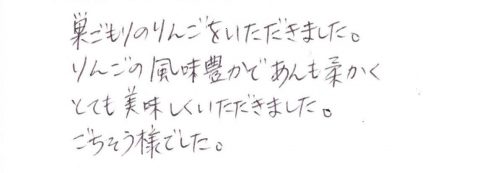 巣ごもりのりんごをいただきました。
りんごの風味豊かであんも柔かく
とても美味しくいただきました。
ごちそう様でした。